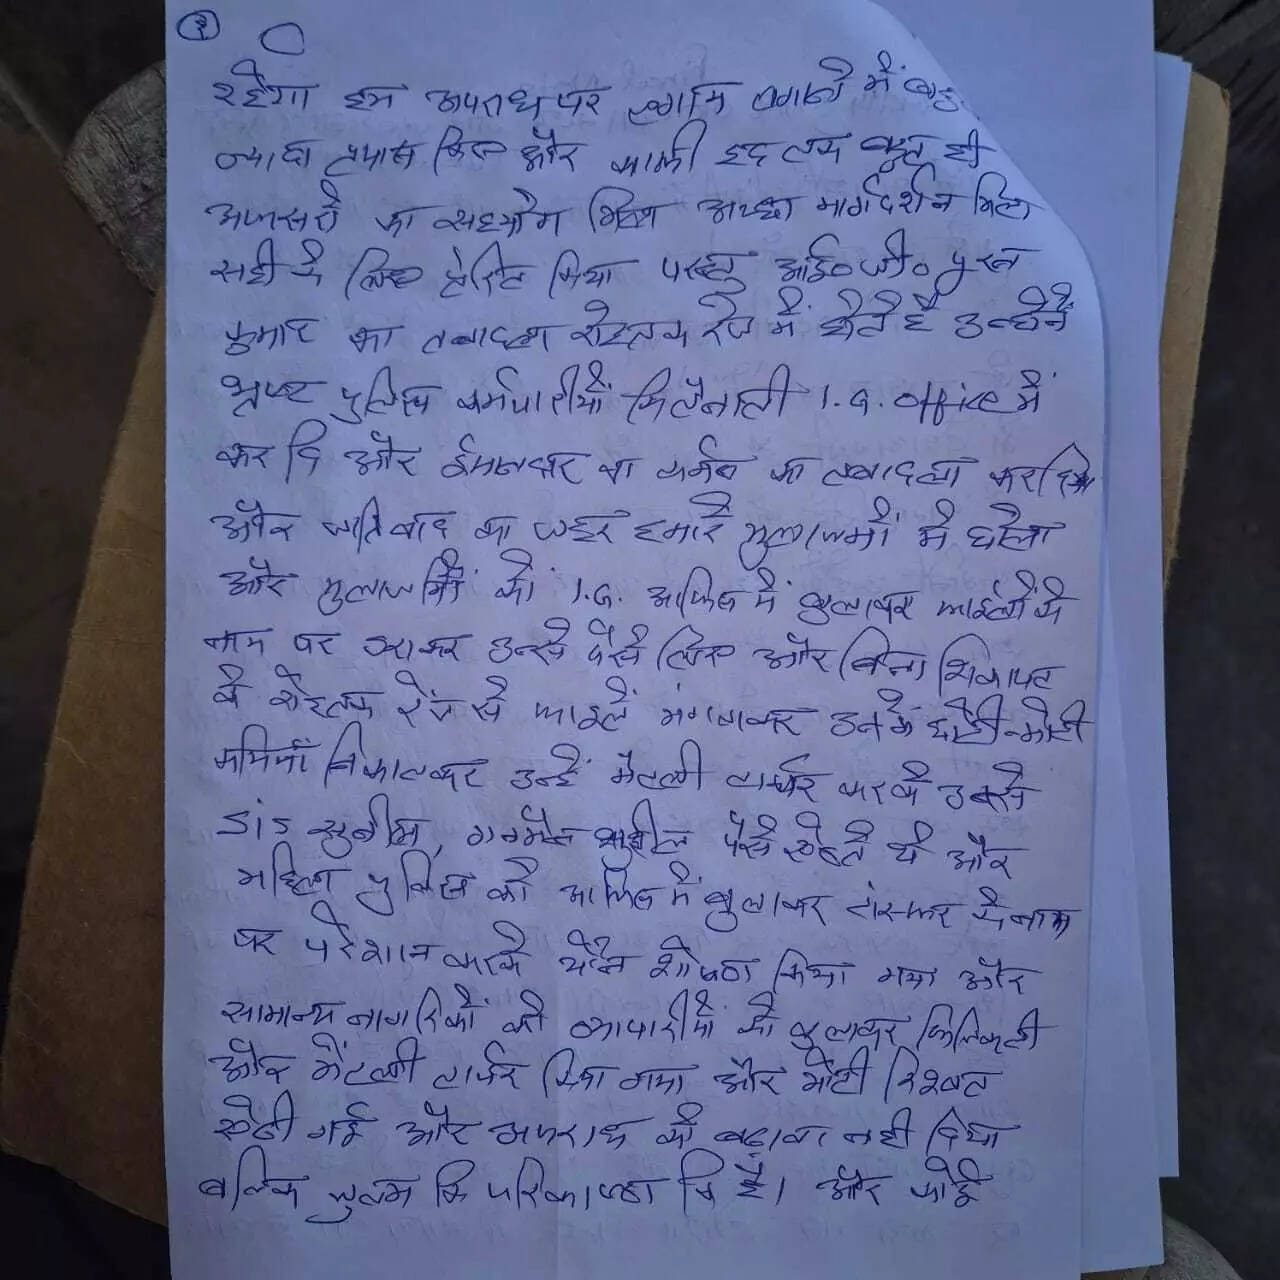 रहेगा हम अपराध पर लगाम लगाने में बहु
ज्यादा प्रयास किए और काफी हद तक बहुत ही
अफसरों का सहयोग मिला अच्छा मार्गदर्शन मिला
सही के लिए प्रेरित किया परन्तु आई०जी० पुरन
कुमार का तबादला रोहतक रेंज में होते है उन्होने
भ्रष्ट पुलिस कर्मचारीयों कि तैनाती I.G. office में
कर दि और ईमानदार का तबादला कर दिया
और जातिवाद का जहर हमारे मुलाजमों मे घोला
और मुलाजमों को I.G. आफिस में बुलाकर फाईलों के
नाम पर डराकर उनसे पैसे लिए और बिना शिकायत
के रोहतक रेंज से फाइलें मंगवाकर उनमे छोटी-मोटी
कमियां निकालकर उन्हें मेंटली टार्चर करके उनसे
SIS सुनील, गनमैन सुशील पैसे ऐंठते थे और
महिला पुलिस को आफिस में बुलाकर ट्रांसफर के नाम
पर परेशान करके यौन शोषण किया गया और
सामान्य नागरिकों को व्यापारीयों को बुलाकर फिजिकली
और मेंटली टार्चर किया गया और मोटी रिश्वत
ऐंठी गई और अपराध को बढावा नही दिया
बल्कि जुल्म कि पराकाष्ठा कि है। और कोई